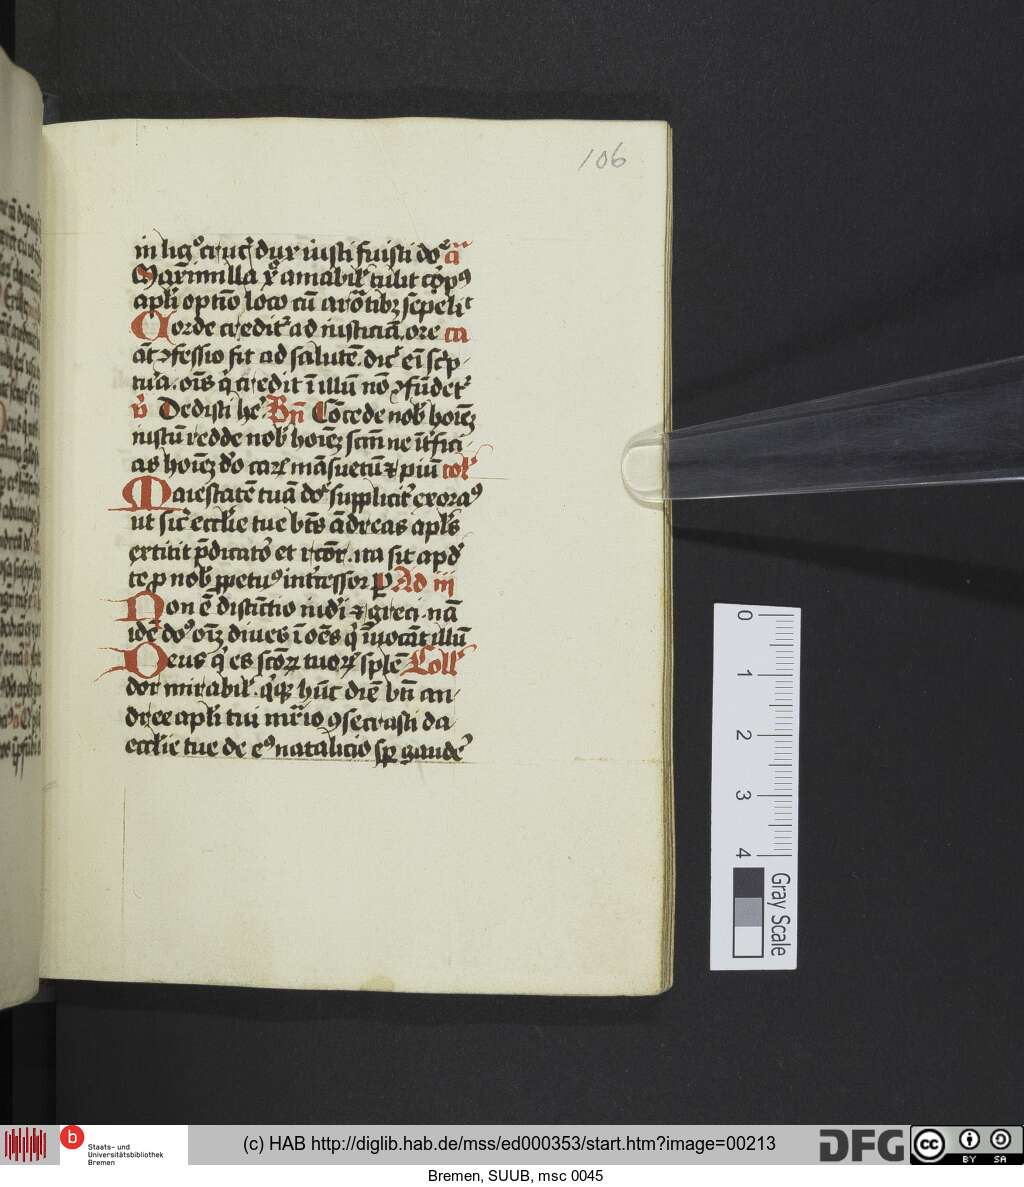 106
in lig° cruc᷒ dux iusti fuisti do᷒ a᷒
Maximilla xp̄o amabil᷒ tulit cōp⁹
apl̓i optīo loco cū aro̅tibꝫ sepeliᵗ
Corde credit᷒ ad iusticiā. ore ca
āt ꝯfessio fit ad salutē. dic᷒ eī sc᷒p
tura. oīs q̓ credit ī illū nō ꝯfūdet᷒
v̓ Dedisti he᷒ Bn̄ Cōcede nob̓ hoīeꝫ
iustū redde nob̓ hoīeꝫ scm̄ ne īt᷒fici
as hoīeꝫ do̓ carꝰ māsuetū ⁊ piū col᷒
Maiestatē tuā do᷒ supplicit᷒ exora⁹
ut sic᷒ eccl̓ie tue bt̄s ādreas apl̓s
extitit p̄dicato᷒ et rcōr. ita sit apd᷒
te p nob̓ ppetu⁹ int᷒cessor p Ad iii
Non ē distīctio iudi̓ ⁊ greci. nā
idē do᷒ oīꝫ dives ī oēs q̓ īuocāt illū
Deus q̓ es scōꝝ tuoꝝ splē Coll᷒
dor mirabil᷒. q̓qꝫ hūc diē bt̄i an
dree apl̓i tui mr̓io ꝯsecrasti da
eccl̓ie tue de e⁹ natalicio sp gaude᷒
0
1
2
3
4
Gray Scale
b
Staats- und
Universitätsbibliothek
Bremen
(c) HAB http://diglib.hab.de/mss/ed000353/start.htm?image=00213
DFG
cc
BY SA
Bremen, SUUB, msc 0045